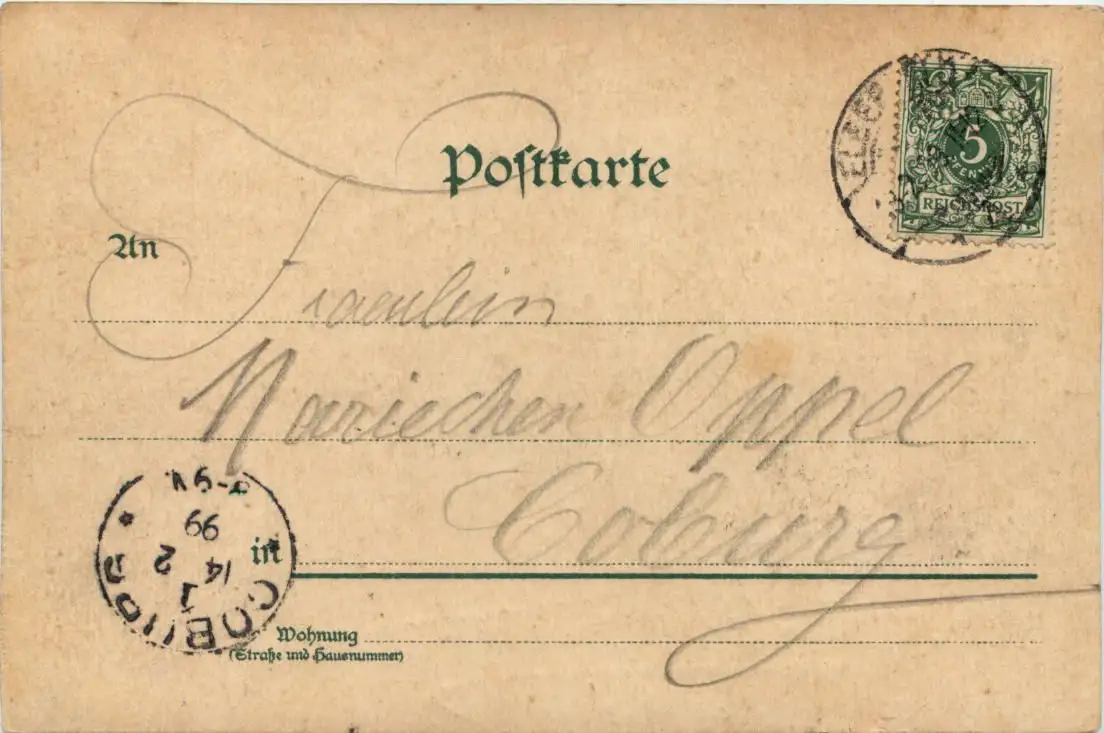 Postkarte
5
PFENNIG
REICHSPOST
An
Fraeulein
Mariechen Oppel
in Coburg
Wohnung
(Straße und Hausnummer)
COBURG
1
14 2
99
8-9V